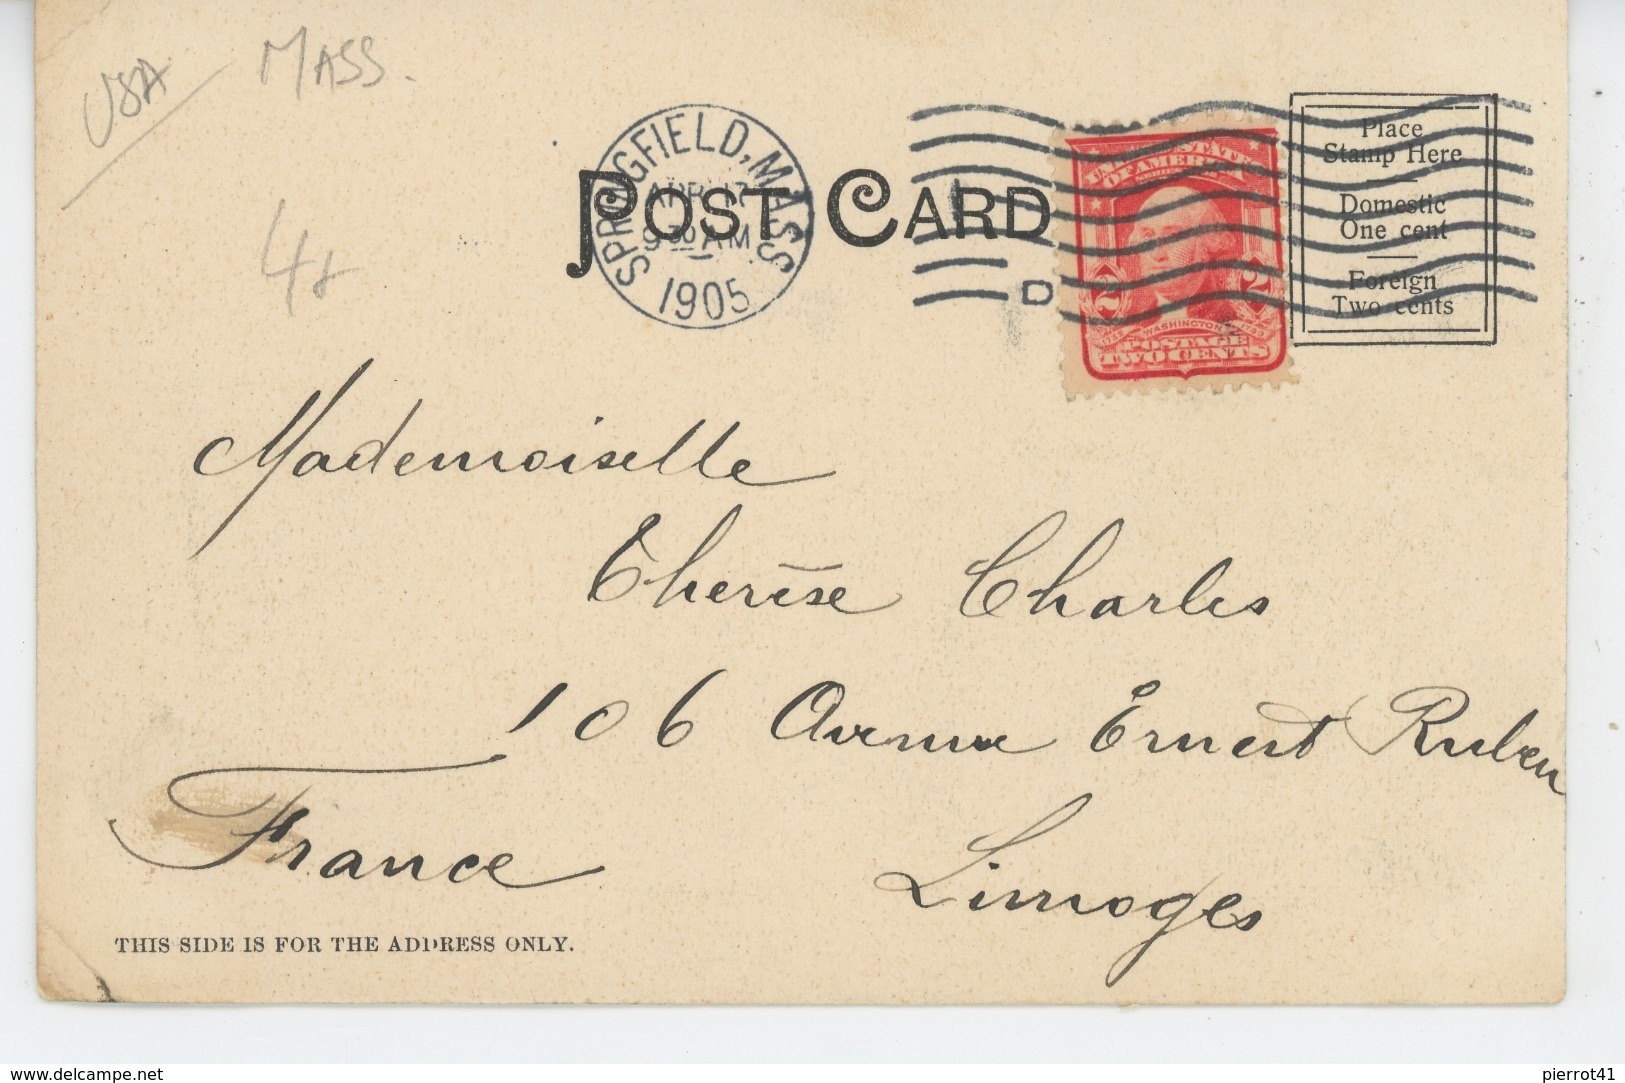 USA
MASS.
48
SPRINGFIELD, MASS
APR 17
9 30 AM
1905
POST CARD
D
UNITED STATES
OF AMERICA
2 2
WASHINGTON
POSTAGE
TWO CENTS
Place
Stamp Here
Domestic
One cent
Foreign
Two cents
Mademoiselle
Therèse Charles
106 Avenue Ernest Ruben
France
Limoges
THIS SIDE IS FOR THE ADDRESS ONLY.
www.delcampe.net
pierrot41